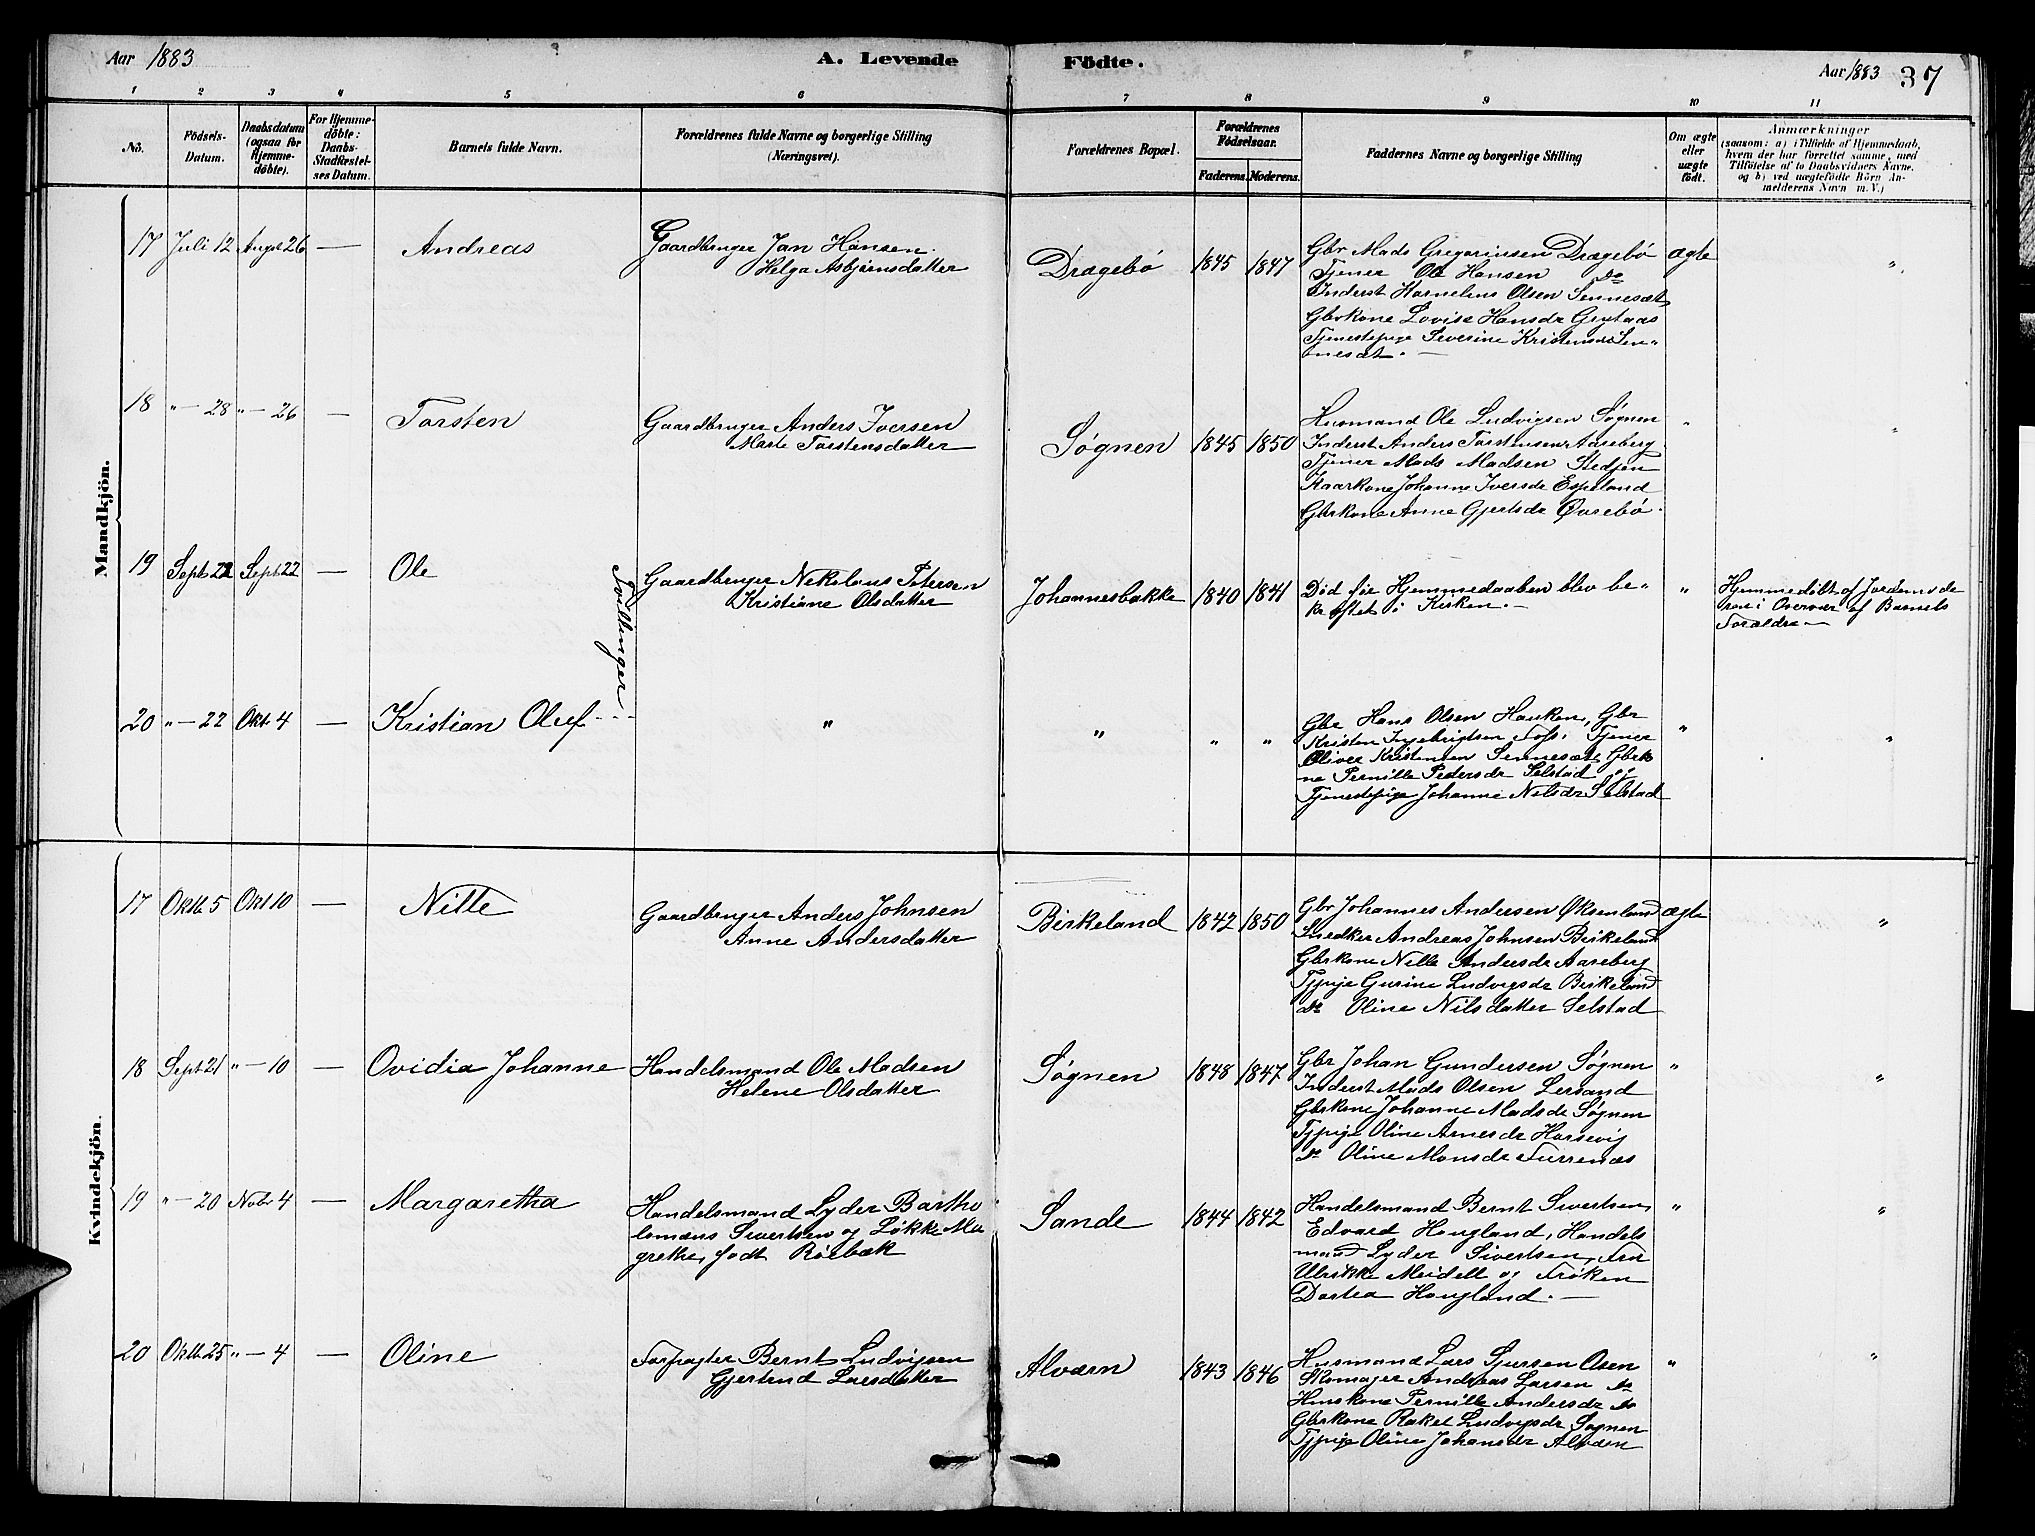 Aar 1883
A. Levende
Födte.
Aar 1883 37
1 2 3 4 5 6 7 8 9 10 11
No.
Födsels-
Datum.
Daabsdatum
(ogsaa for
Hjemme-
döbte).
For Hjemme-
döbte:
Daabs-
Stadfæstel-
ses Datum.
Barnets fulde Navn.
Forældrenes fulde Navne og borgerlige Stilling
(Næringsvei).
Forældrenes Bopæl.
Forældrenes
Födselsaar.
Faderens. Moderens.
Faddernes Navne og borgerlige Stilling
Om ægte
eller
uægte
födt.
Anmærkninger
(saasom: a) i Tilfælde af Hjemmedaab,
hvem der har forrettet samme, med
Tilföielse af to Daabsvidners Navne,
og b) ved uægtefödte Börn An-
melderens Navn m. V.)
Mandkjön.
17 Juli 12 Augst 26 — Andreas
Gaardbruger Jan Hansen.
Helga Asbjørnsdatter
Drægebø 1845 1847
Gbr Mads Gregoriusen Drægebø
Tjener Ole Hansen do
Inderst Kornelius Olsen Sennesæt
Gbrkone Lovise Hansdr Grytaas
Tjenestepige Severine Kristensdr Sen-
nesæt. —
ægte
"
18 " — 28 " — 26 — Torsten
Gaardbruger Anders Iversen
Marte Torstensdatter
Søgnen 1845 1850
Husmand Ole Ludvigsen Søgnen
Inderst Anders Torstensen Aareberg
Tjener Mads Madsen Stedjen
Kaarkone Johanne Iversdr Espeland
Gbrkone Anne Gjertsdr Øvrebø.
"
"
19 Sept 22 Sept 22 — Ole
Tvillinger
Gaardbruger Nikolaus Petersen
Kristiane Olsdatter
Johannesbakke 1840 1841
Død før Hjemmedaaben blev be-
kræftet i Kirken. —
"
Hjemmedøbt af Jordemode
ren i Overvær af Barnets
Forældre —
20 " — 22 Okt 4 — Kristian Oluf - - -
"
" " "
Gbr Hans Olsen Hauken, Gbr
Kristen Ingebrigtsen Foss, Tjener
Oliver Kristensen Sennesæt, Gbrko
ne Pernille Pedersdr Selstad og
Tjenestepige Johanne Nilsdr Selstad
"
"
Kvindekjön.
17 Oktb 5 Okt 10 — Nille
Gaardbruger Anders Johnsen
Anne Andersdatter
Birkeland 1842 1850
Gbr Johannes Andersen Øksenland
Snedker Andreas Johnsen Birkeland
Gbrkone Nille Andersdr Aareberg
Tjpige Gurine Ludvigsdr Birkeland
do Oline Nilsdatter Selstad
ægte
"
18 Sept 21 " — 10 — Ovidia Johanne
Handelsmand Ole Madsen
Helene Olsdatter
Søgnen 1848 1847
Gbr Johan Gundersen Søgnen
Inderst Mads Olsen Lersand
Gbrkone Johanne Madsdr Søgnen
Tjpige Oline Arnesdr Horsevig
do Oline Monsdr Furrenæs
"
"
19 " — 20 Nobr 4 — Margaretha
Handelsmand Lyder Bartho
lomæus Sivertsen og Løkke Ma
grethe, født Röebæk
Sande 1844 1842
Handelsmand Bernt Sivertsen,
Edvard Hougland, Handels
mand Lyder Sivertsen, Fru
Ulrikke Meidell og Frøken
Dortea Hougland. —
"
"
20 Oktb 25 " — 4 — Oline
Forpagter Bernt Ludvigsen
Gjertrud Larsdatter
Alværn 1843 1846
Husmand Lars Sjursen Osen
Skomager Andreas Larsen do
Huuskone Pernille Andersdr do
Gbrkone Rakel Ludvigsdr Søgnen
Tjpige Oline Johansdr Alværn
"
"